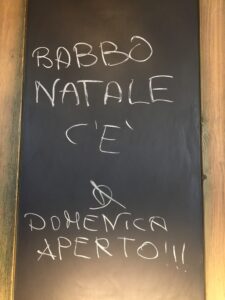 BABBO
NATALE
C'È
&
DOMENICA
APERTO!!!